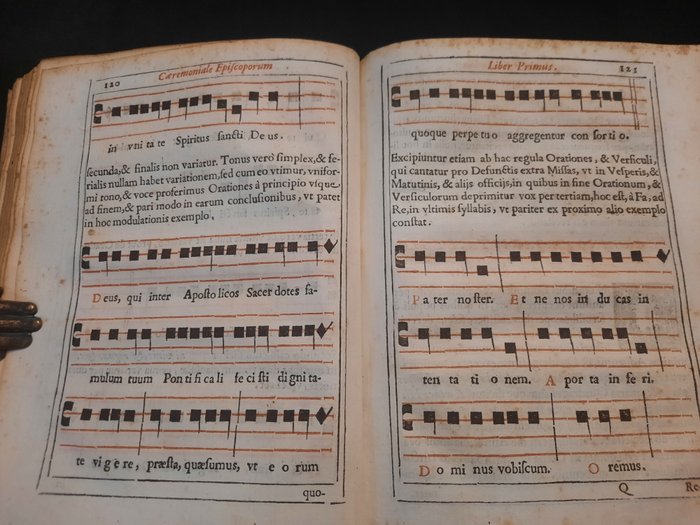 120 Cæremoniale Episcoporum
in vni ta te Spiritus sancti De us.
secunda, & finalis non variatur. Tonus verò simplex, & fe-
rialis nullam habet variationem, sed cum eo vtimur, vnifor-
mi tono, & voce proferimus Orationes à principio vsque
ad finem, & pari modo in earum conclusionibus, vt patet
in hoc modulationis exemplo.
Deus, qui inter Aposto licos Sacer dotes fa-
mulum tuum Pon ti fi ca li fe ci sti di gni ta-
te vi ge re, præsta, quæsumus, vt e o rum
quo-
Liber Primus. 121
quoque perpe tu o aggregentur con sor ti o.
Excipiuntur etiam ab hac regula Orationes, & Versiculi,
qui cantatur pro Defunctis extra Missas, vt in Vesperis, &
Matutinis, & alijs officijs, in quibus in fine Orationum, &
Versiculorum deprimitur vox per tertiam, hoc est, à Fa, ad
Re, in vltimis syllabis, vt pariter ex proximo alio exemplo
constat.
Pa ter no ster. Et ne nos in du cas in
ten ta ti o nem. A por ta in fe ri.
Do mi nus vobiscum. O remus.
Q Re-